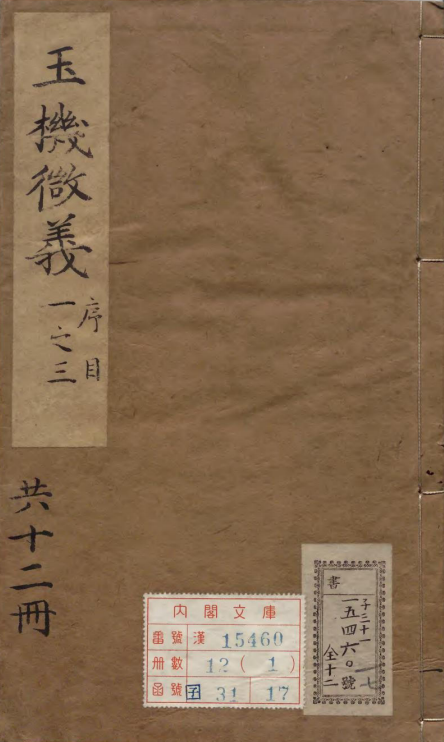 玉機微義
序目
一之三
共十二冊
内閣文庫
番號 漢 15460
冊數 12 ( 1 )
函號 子 31 17
書
子三十一
一五四六〇號
全十二
一七